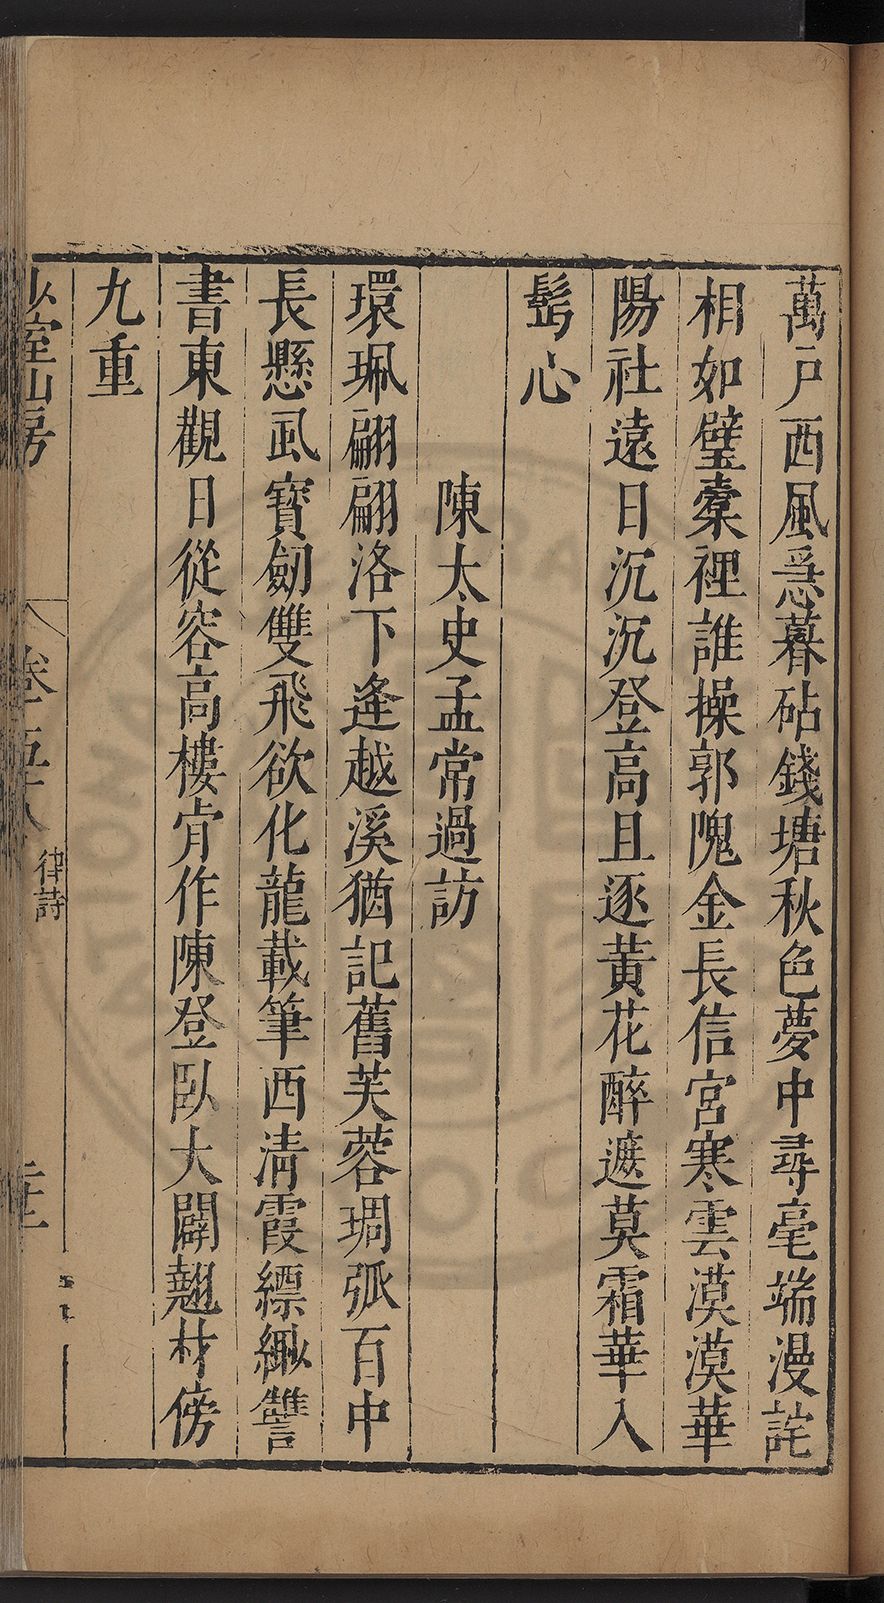 萬戶西風急暮砧錢塘秋色夢中尋毫端漫詫
相如璧橐裡誰操郭隗金長信宮寒雲漠漠華
陽社遠日沉沉登高且逐黃花醉遮莫霜華入
髩心
陳太史孟常過訪
環珮翩翩洛下逢越溪猶記舊芙蓉琱弧百中
長懸虱寶劒雙飛欲化龍載筆西清霞縹緲讐
書東觀日從容高樓肯作陳登臥大闢翹材傍
九重
少室山房
卷五十八
律詩